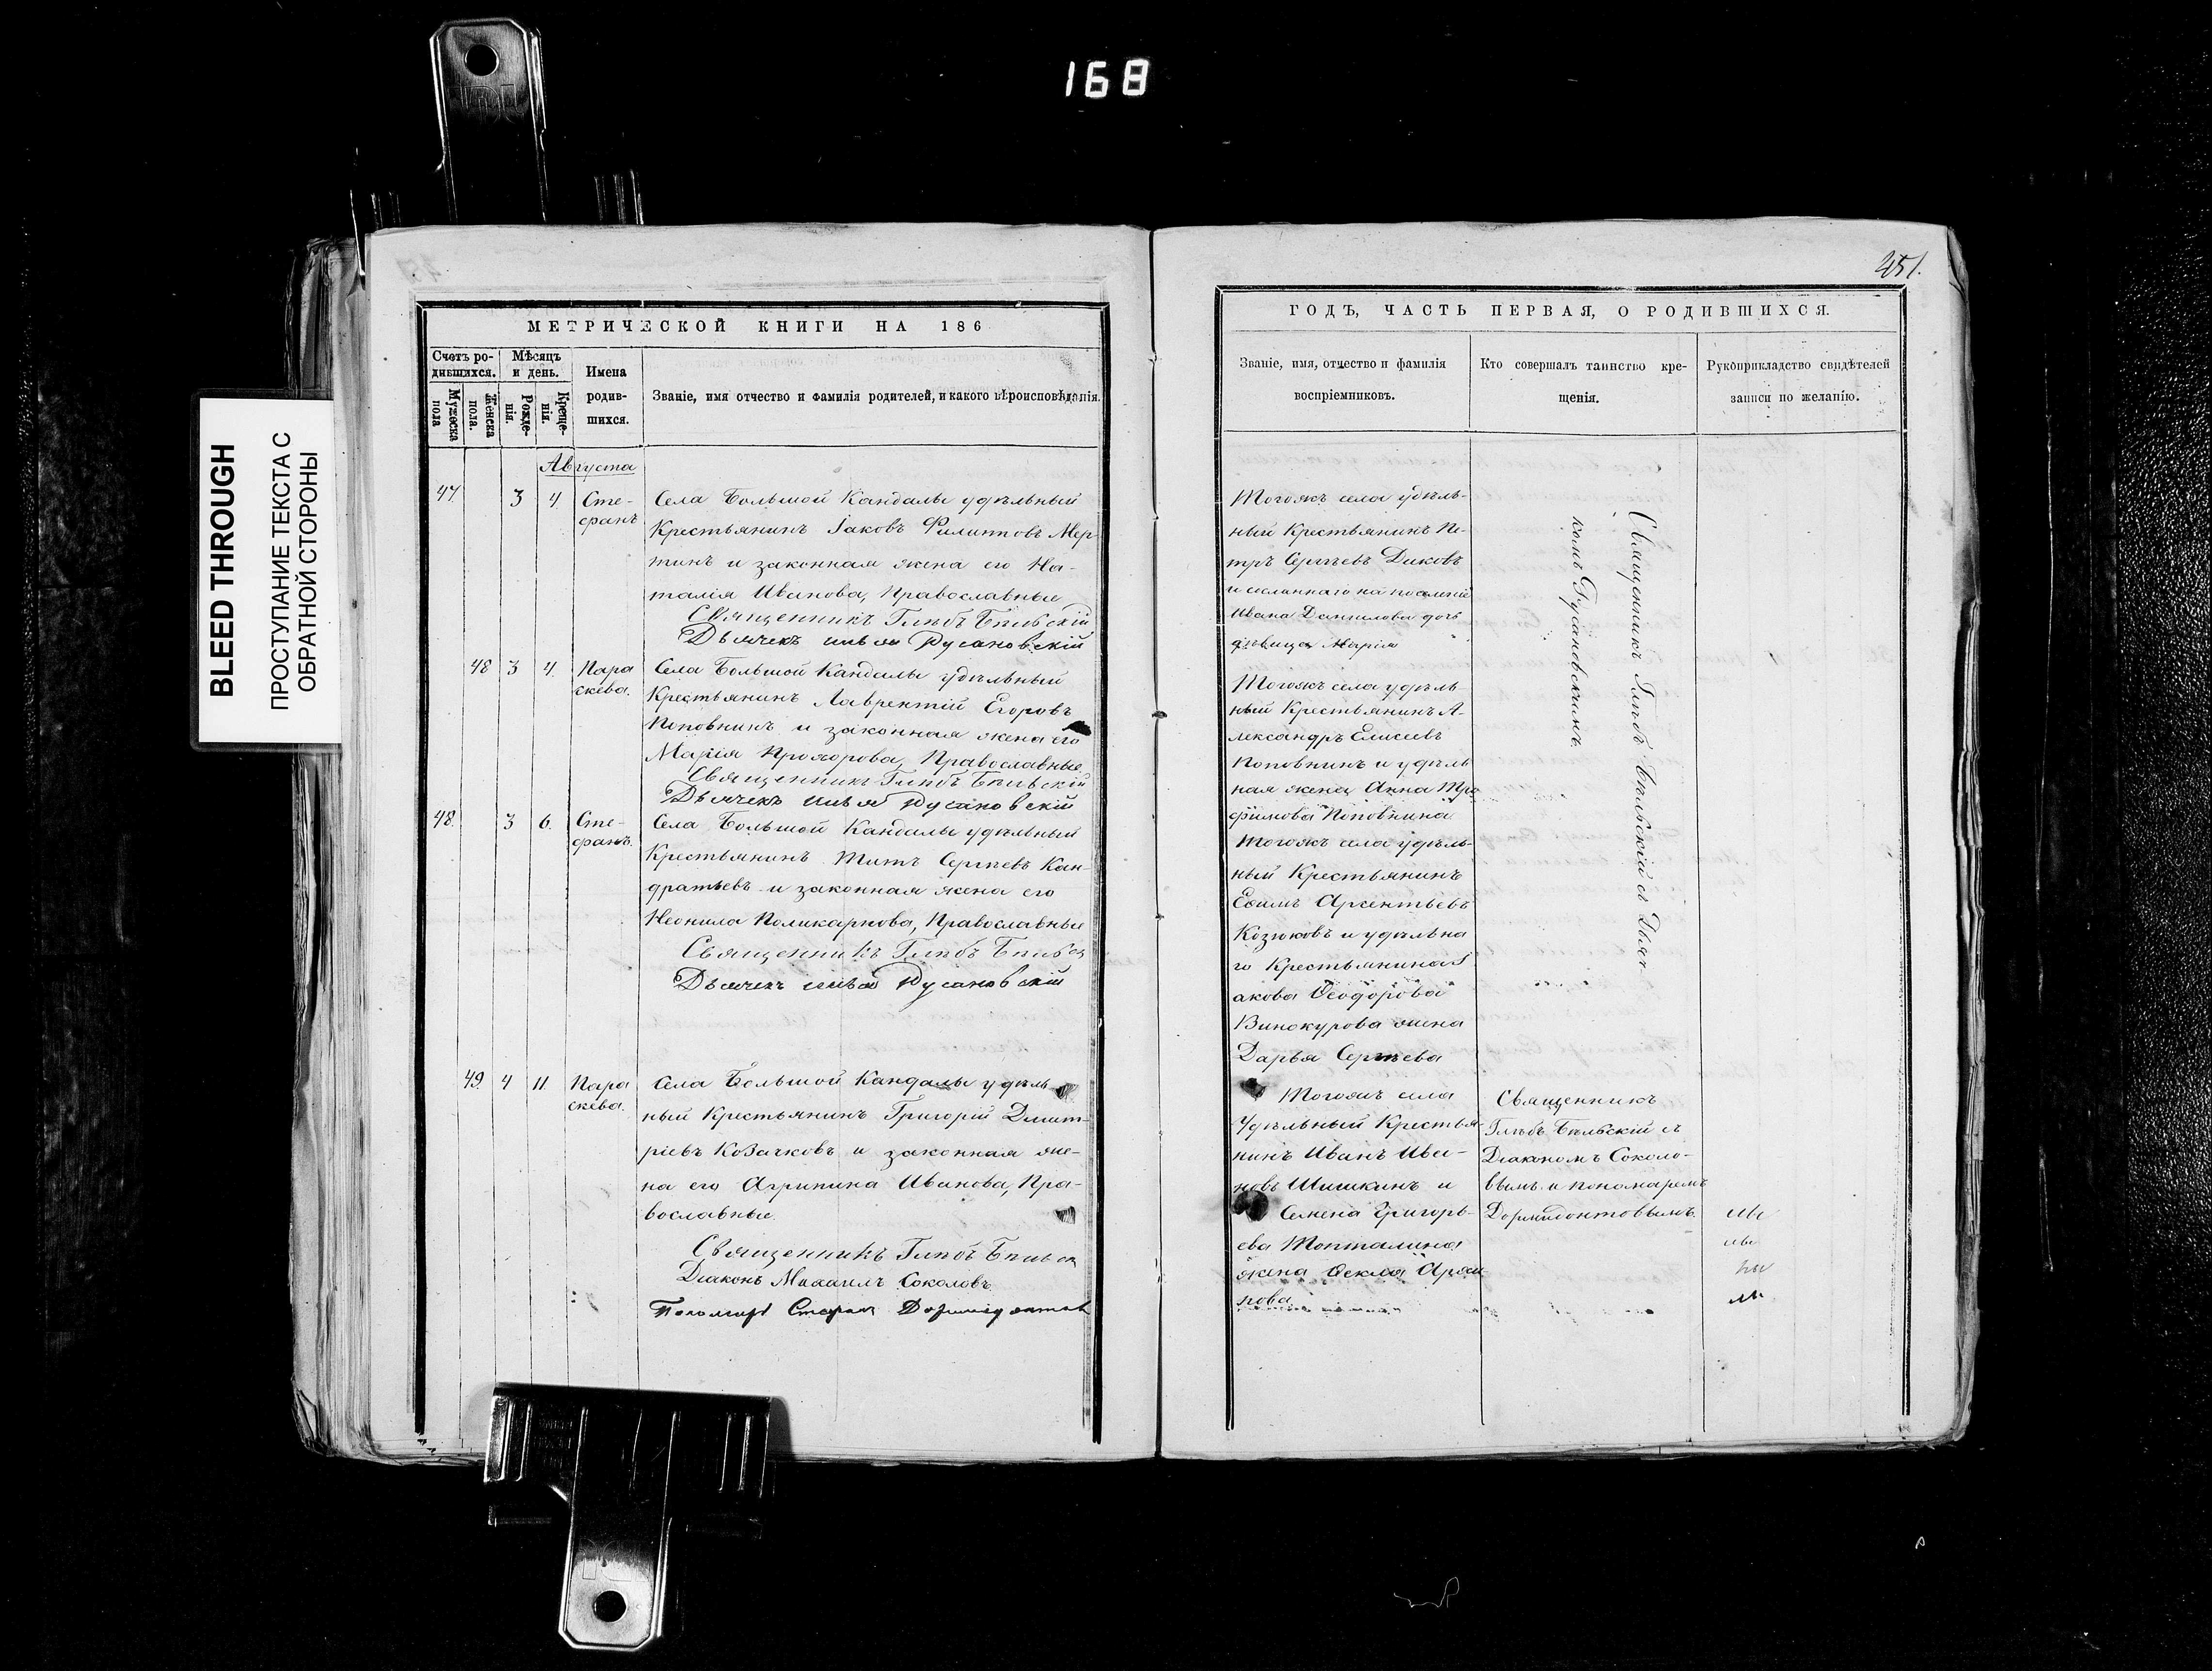 168
BLEED THROUGH
ПРОСТУПАНИЕ ТЕКСТА С
ОБРАТНОЙ СТОРОНЫ
МЕТРИЧЕСКОЙ КНИГИ НА 186
Счетъ ро-
дившихся.
Мужеска
пола
Женска
пола.
Мѣсяцъ
и день.
Рожде-
нія.
Креще-
нія.
Имена
родив-
шихся.
Званіе, имя отчество и фамилія родителей, и какого вѣроисповѣданія.
Августа
47 3 4 Сте-
фанъ
Села Большой Кандалы удѣльный
Крестьянинъ Іаковъ Филипповъ Мер
тинъ и законная жена его На-
талія Иванова, Православные
Священникъ Глѣбъ Бѣльскій
Дьячекъ Илья Русановскій
48 3 4. Пара
скева.
Села Большой Кандалы удѣльный
Крестьянинъ Лаврентій Егоровъ
Поповнинъ и законная жена его
Марія Прохорова, Православные
Священникъ Глѣбъ Бѣльскій
Дьячекъ Илья Русановскій
48. 3 6. Сте-
фанъ.
Села Большой Кандалы удѣльный
Крестьянинъ Титъ Сергѣевъ Кан-
дратьевъ и законная жена его
Неонила Поликарпова, Православные
Священникъ Глѣбъ Бѣльск
Дьячекъ Илья Русановскій
49. 4 11. Пара
скева.
Села Большой Кандалы удѣль
ный Крестьянинъ Григорій Дмит-
ріевъ Козачковъ и законная же-
на его Агрипина Иванова, Пра-
вославные.
Священникъ Глѣбъ Бѣльск
Діаконъ Михаилъ Соколовъ
Пономарь Стефан Дормидонтов
451.
ГОДЪ, ЧАСТЬ ПЕРВАЯ, О РОДИВШИХСЯ.
Званіе, имя, отчество и фамилія
воспріемниковъ.
Кто совершалъ таинство кре-
щенія.
Рукоприкладство свидѣтелей
записи по желанію.
Тогожъ села удѣль-
ный Крестьянинъ Пе-
тръ Сергѣевъ Диковъ
и сосланнаго на поселеніе
Ивана Данилова дочь
дѣвица Марія
Тогожъ села удѣль-
ный Крестьянинъ А-
лександръ Елисеевъ
Поповнинъ и удѣль
ная жена Анна Тро
фимова Поповнина
Тогожъ села удѣль-
ный Крестьянинъ
Ефимъ Арсентьевъ
Козюковъ и удѣльна
го Крестьянина І
акова Ѳеодорова
Винокурова жена
Дарья Сергѣева
Священникъ Глѣбъ Бѣльскій съ Дьяч
комъ Русановскимъ.
Тогожъ села
Удѣльный Крестья-
нинъ Иванъ Ива-
новъ Шишкинъ и
Семена Григорь-
ева Топталина
жена Ѳекла
Священникъ
Глѣбъ Бѣльскій съ
Діакономъ Соколо-
вымъ и пономаремъ
Дормидонтовымъ.